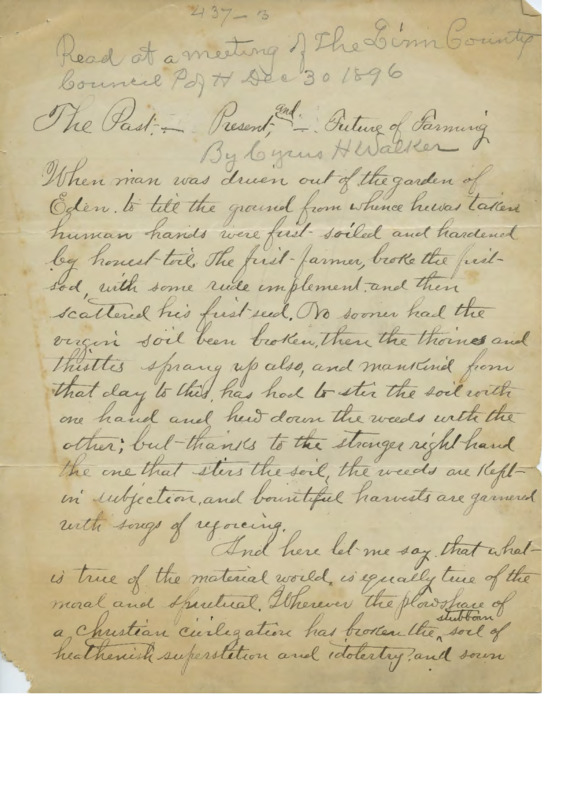 437-3
Read at a meeting of The Linn County
Council P of H Dec 30 1896
The Past:— Present, and — Future of Farming
By Cyrus H Walker
When man was driven out of the garden of
Eden. to till the ground from whence he was taken
human hands were first soiled and hardened
by honest toil. The first farmer, broke the first
sod, with some rude implement and then
scattered his first seed. No sooner had the
virgin soil been broken, then the thornes and
thistles sprang up also, and mankind from
that day to this, has had to stir the soil with
one hand and hew down the weeds with the
other; but thanks to the stronger right hand
the one that stirs the soil, the weeds are kept
in subjection, and bountiful harvests are garnered
with songs of rejoicing.
And here let me say, that what
is true of the material world, is equally true of the
moral and spiritual. Wherever the plowshare of
a Christian civilization has broken the stubborn soil of
heathenish superstition and idolertry, and sown